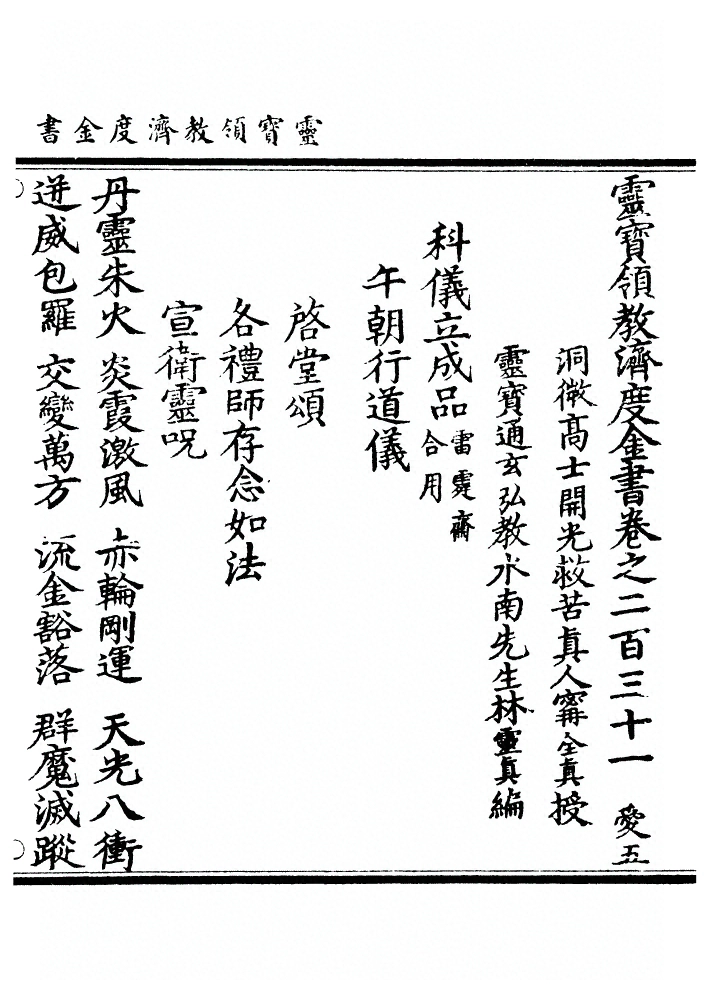 靈寶領教濟度金書
靈寶領教濟度金書卷之二百三十一 愛五
洞微高士開光救苦眞人甯全眞授
靈寶通玄弘教水南先生林靈眞編
科儀立成品雷霆齋合用
午朝行道儀
啓堂頌
各禮師存念如法
宣衛靈呪
丹靈朱火 炎霞激風 赤輪剛運 天光八衝
迸威包羅 交變萬方 流金豁落 群魔滅蹤